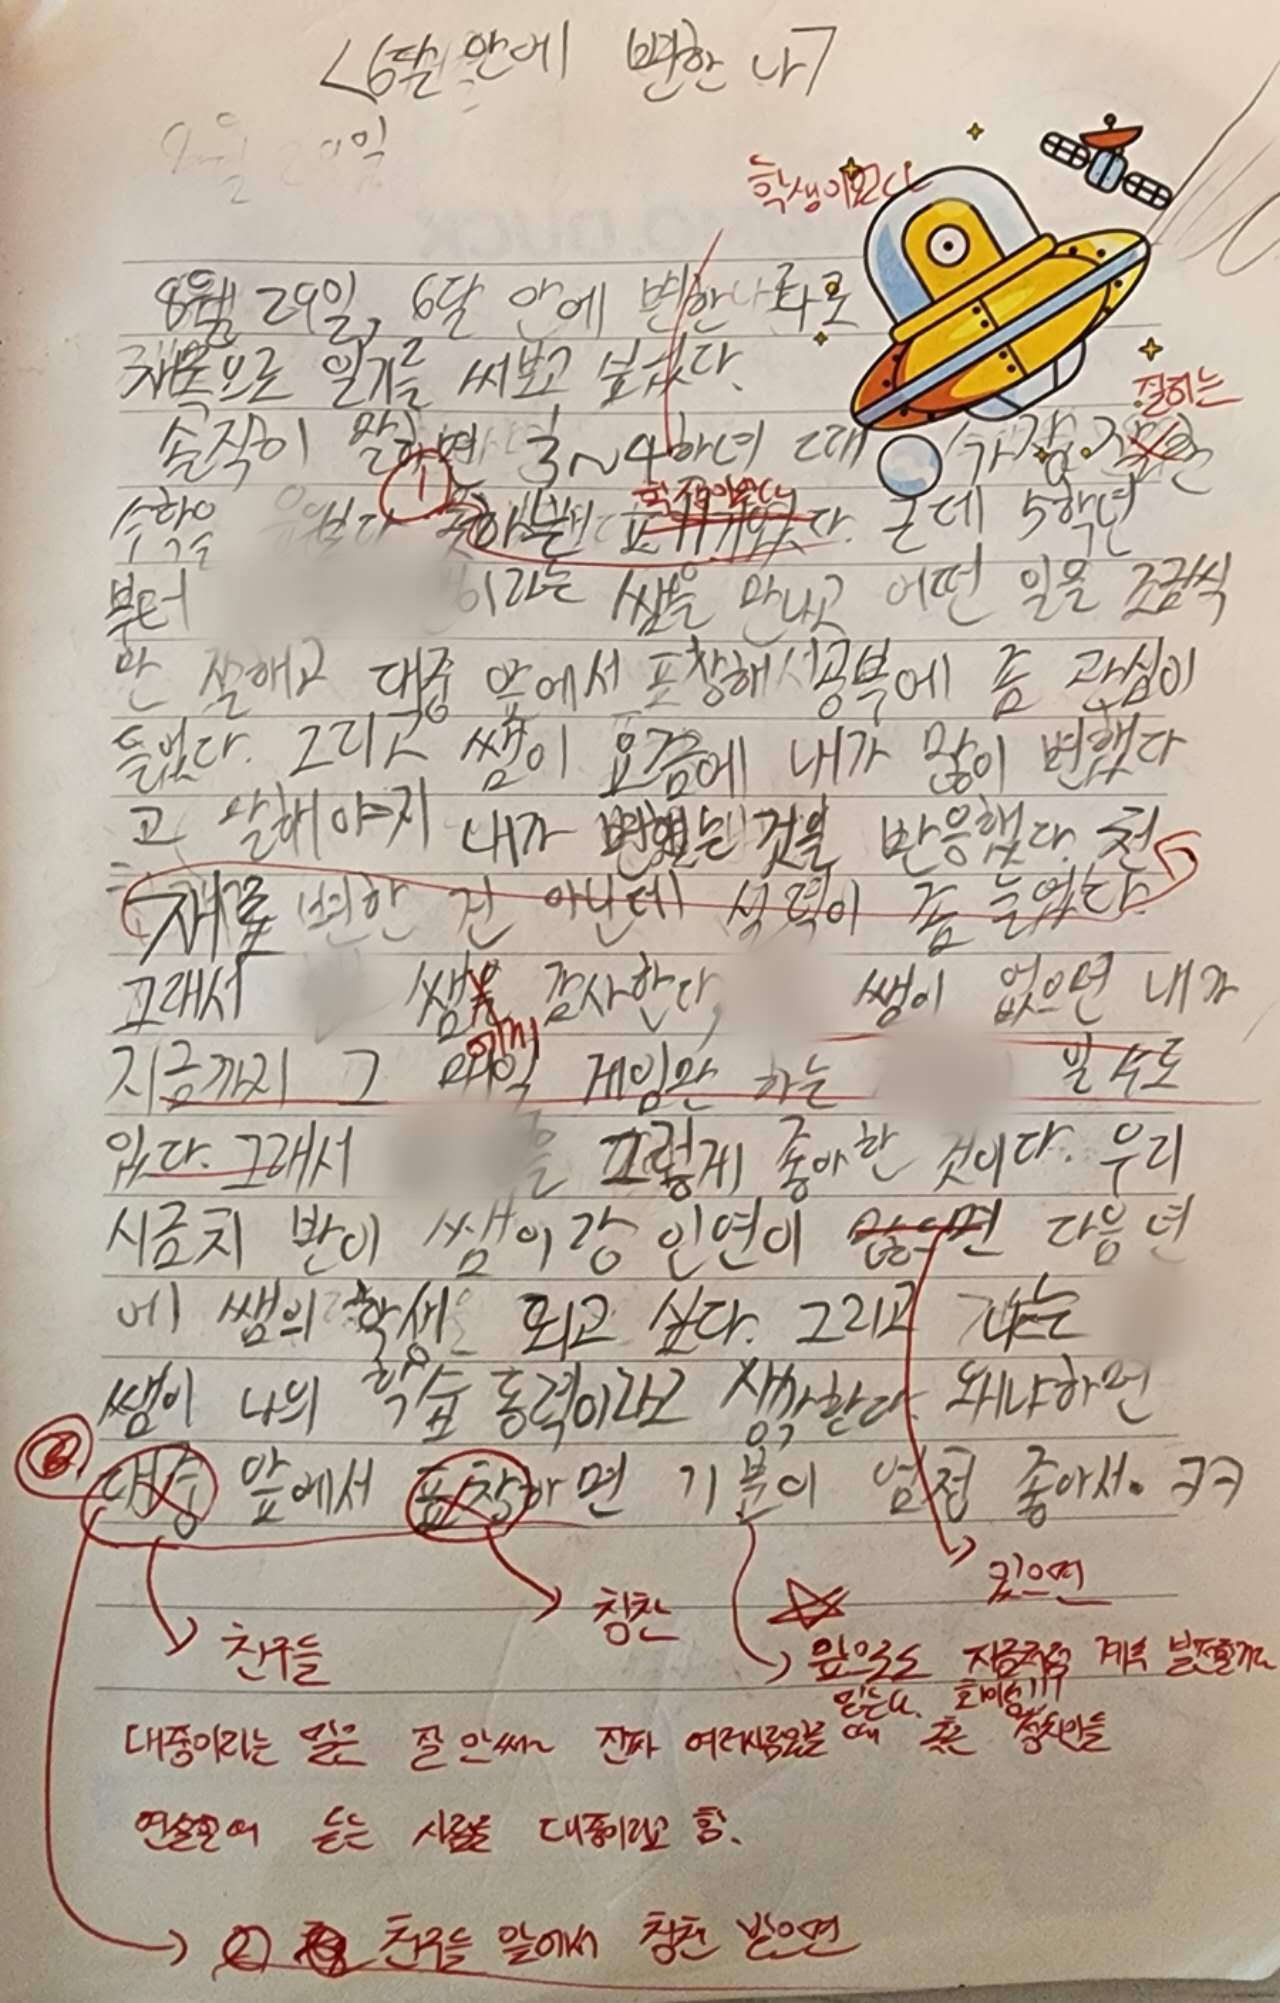 <6달 안에 변한 나>
8월 29일
학생이었다
8월 29일, 6달 안에 변한 나
제목으로 일기를 써보고 싶었다.
잘하는
솔직히 말하면 3~4학년 때 가장
①
수학을 보다 못하는 근데 5학년
부터 이라는 쌤을 만나고 어떤 일을 조금씩
만 잘해고 대중 앞에서 표창해서 공부에 좀 관심이
들었다. 그리고 쌤이 요즘에 내가 많이 변했다
고 말해야지 내가 변했는 것을 반응했다. 천
재로 변한 건 아닌데 실력이 좀 늘었다.
그래서 쌤 감사한다, 쌤이 없으면 내가
에게
지금까지 그 매일 게임만 하는 일 수도
있다. 그래서 을 그렇게 좋아한 것이다. 우리
시금치 반이 쌤이랑 인연이 다음 년
에 쌤의 학생 되고 싶다. 그리고 나는
쌤이 나의 학습 동력이라고 생각한다. 왜냐하면
대중 앞에서 표창하면 기분이 엄청 좋아서. ㅋㅋ
있으면
칭찬
친구들
앞으로도 지금처럼 계속 발전할거라
믿는다. 화이팅!!!
대중이라는 말은 잘 안써~ 진짜 여러사람있을 때 혹은 정치인들
연설 듣는 사람들 대중이라고 함.
② 친구들 앞에서 칭찬 받으면